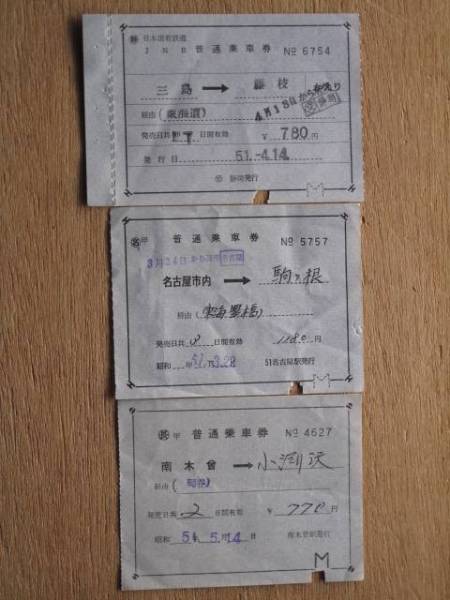 日本国有鉄道
JNR 普通乗車券 No 6754
三島 → 藤枝
4月18日から有効
経由(東海道)
発売日共 日間有効 ¥780円
発行日 51.-4.14
静岡発行
甲 普通乗車券 No 5757
3月24日から
名古屋市内 → 駒ヶ根
経由( )
発売日共 日間有効 1180円
昭和 年 51. 月 3.23 51名古屋駅発行
甲 普通乗車券 No 4627
南木曽 → 小淵沢
経由( )
発売日共 2 日間有効 ¥770円
昭和 51. 5.月14 日 南木曽駅発行